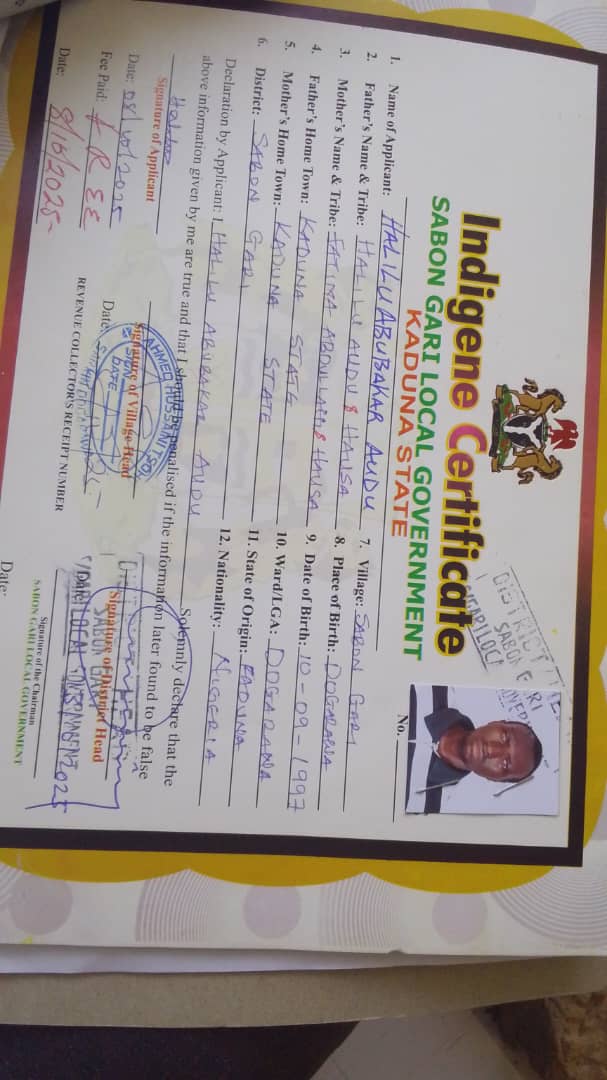 Indigene Certificate
SABON GARI LOCAL GOVERNMENT
KADUNA STATE
No.
DISTRICT
SABON GARI
1. Name of Applicant: HALILU ABUBAKAR AUDU
2. Father's Name & Tribe: HALILU AUDU & HAUSA
3. Mother's Name & Tribe: FATIMA ABDULLAHI & HAUSA
4. Father's Home Town: KADUNA STATE
5. Mother's Home Town: KADUNA STATE
6. District: SABON GARI
7. Village: SABON GARI
8. Place of Birth: DOGARAWA
9. Date of Birth: 10-09-1997
10. Ward/LGA: DOGARAWA
11. State of Origin: KADUNA
12. Nationality: NIGERIA
Declaration by Applicant: I HALILU ABUBAKAR AUDU Solemnly declare that the
above information given by me are true and that I should be penalised if the information later found to be false
Signature of Applicant
Date: 08/10/2025
Signature of Village Head
AHMED HUSSAINI
SIGN
DATE
Date:
Signature of District Head
SABON GARI
LOCAL GOVERNMENT
Date: 2025
Fee Paid: FREE
REVENUE COLLECTOR'S RECEIPT NUMBER
Date: 8/10/2025
Signature of the Chairman
SABON GARI LOCAL GOVERNMENT
Date: